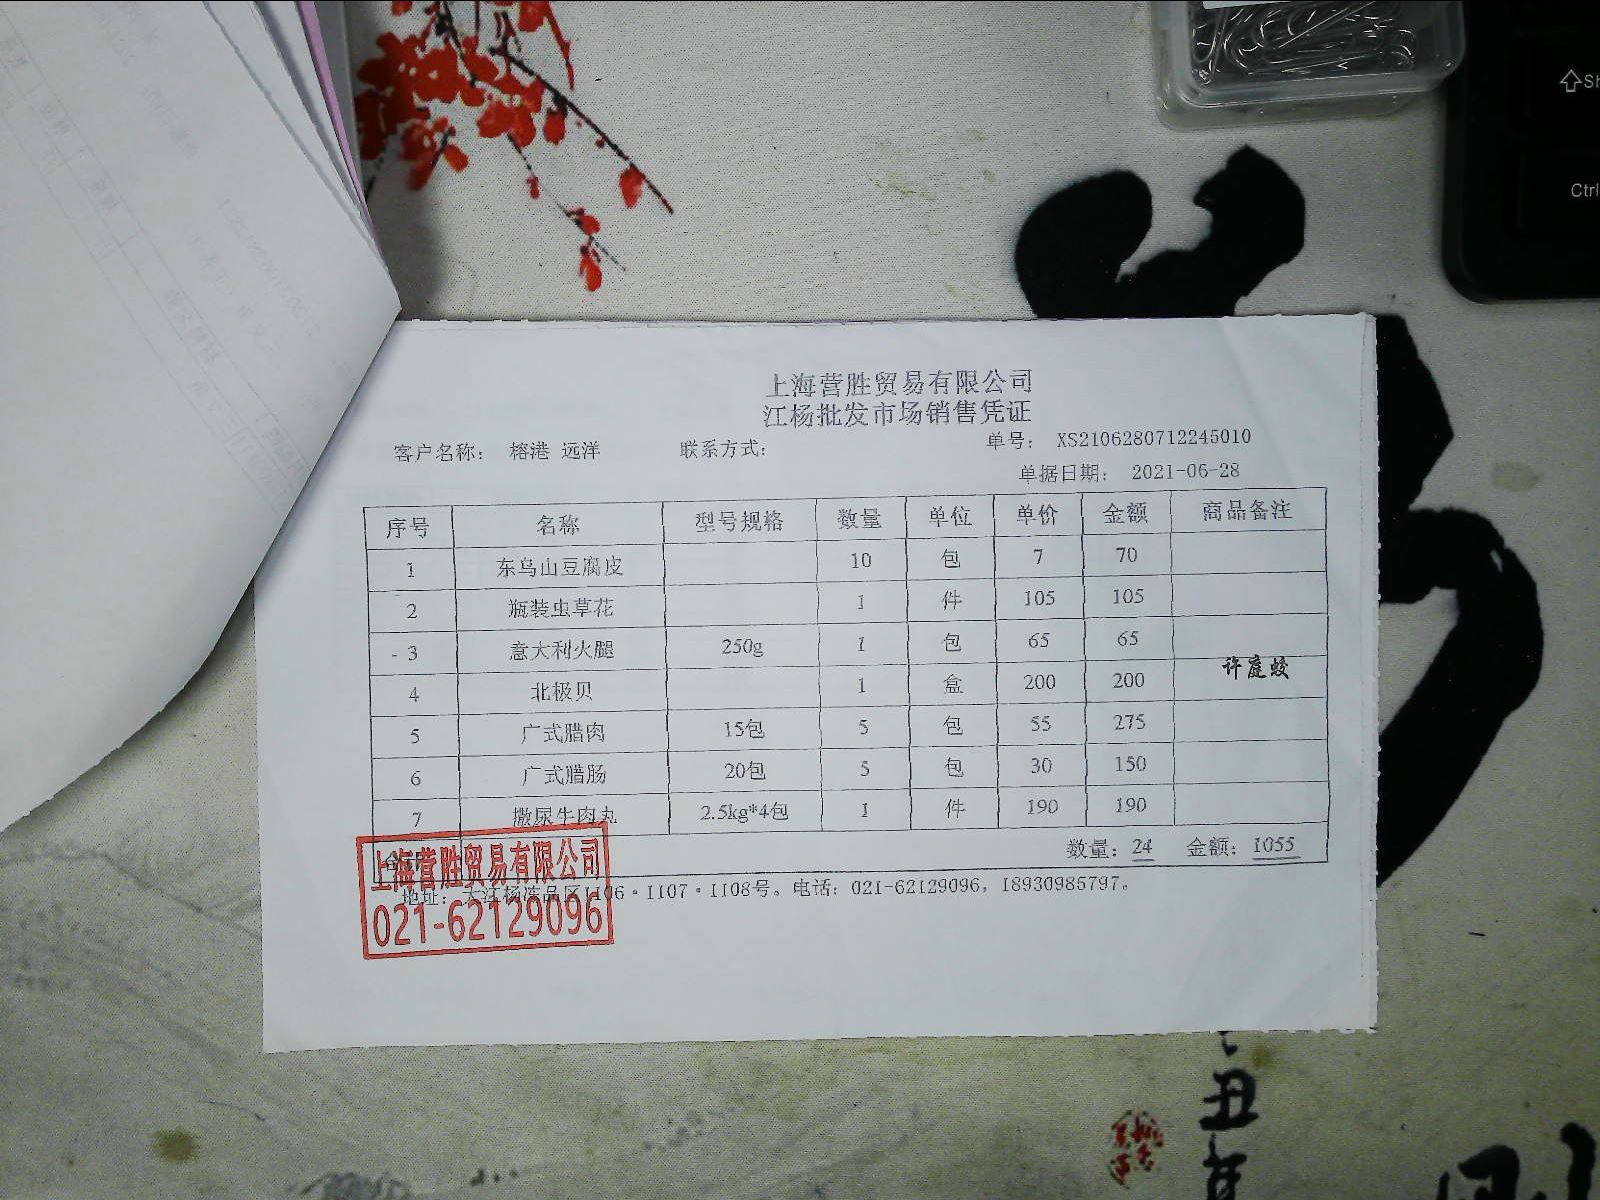 上海营胜贸易有限公司
江杨批发市场销售凭证
客户名称： 榕港 远洋 联系方式： 单号： XS2106280712245010
单据日期： 2021-06-28
序号 名称 型号规格 数量 单位 单价 金额 商品备注
1 东乌山豆腐皮 10 包 7 70
2 瓶装虫草花 1 件 105 105
3 意大利火腿 250g 1 包 65 65
许庭蛟
4 北极贝 1 盒 200 200
5 广式腊肉 15包 5 包 55 275
6 广式腊肠 20包 5 包 30 150
7 撒尿牛肉丸 2.5kg*4包 1 件 190 190
数量：24 金额：1055
地址：大江杨冻品区1106·1107·1108号。电话：021-62129096，18930985797。
上海营胜贸易有限公司
021-62129096
Ctrl
丑